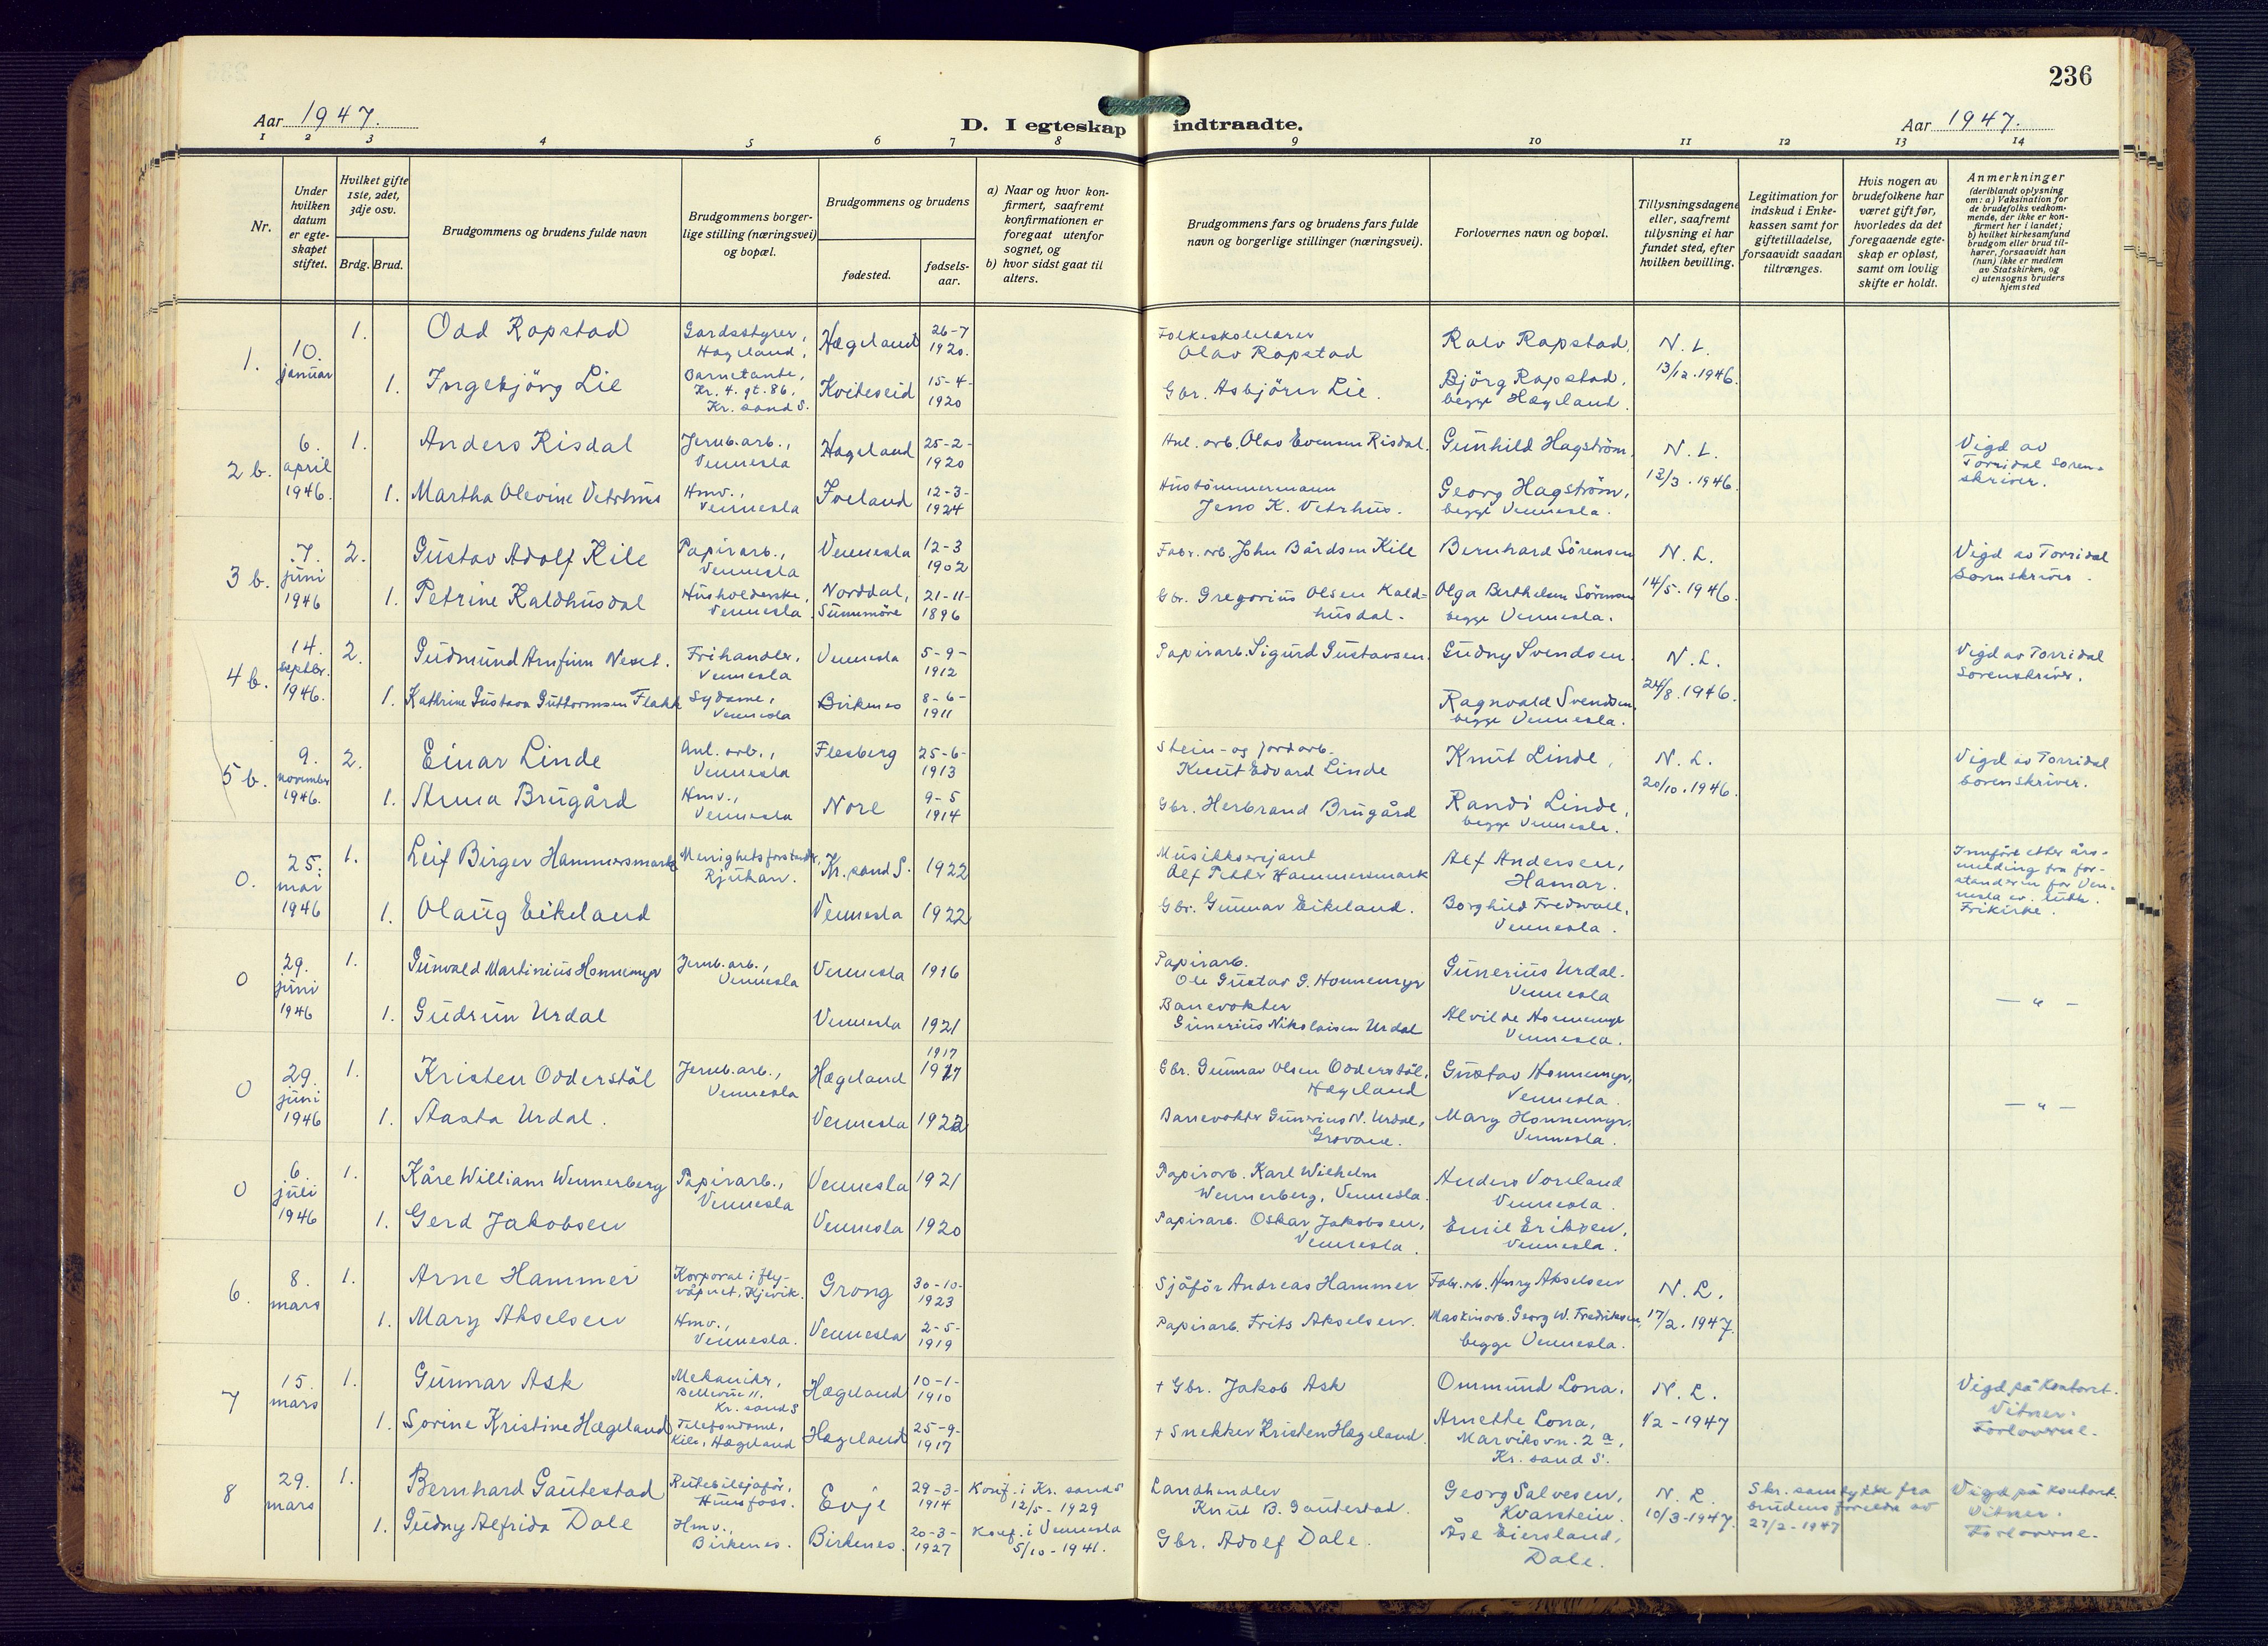 236
Aar 1947.
D. I egteskap indtraadte.
Aar 1947.
1 2 3 4 5 6 7 8 9 10 11 12 13 14
Nr.
Under hvilken datum er egte-skapet stiftet.
Hvilket gifte 1ste, 2det, 3dje osv.
Brdg. Brud.
Brudgommens og brudens fulde navn
Brudgommens borger-lige stilling (næringsvei) og bopæl.
Brudgommens og brudens
fødested.
fødsels-aar.
a) Naar og hvor kon-firmert, saafremt konfirmationen er foregaat utenfor sognet, og
b) hvor sidst gaat til alters.
Brudgommens fars og brudens fars fulde navn og borgerlige stillinger (næringsvei).
Forlovernes navn og bopæl.
Tillysningsdagene eller, saafremt tillysning ei har fundet sted, efter hvilken bevilling.
Legitimation for indskud i Enke-kassen samt for giftetilladelse, forsaavidt saadan tiltrænges.
Hvis nogen av brudefolkene har været gift før, hvorledes da det foregaaende egte-skap er opløst, samt om lovlig skifte er holdt.
Anmerkninger
(deriblandt oplysning om: a) Vaksination for de brudefolks vedkom-mende, der ikke er kon-firmert her i landet; b) hvilket kirkesamfund brudgom eller brud til-hører, forsaavidt han (hun) ikke er medlem av Statskirken, og c) utensogns bruders hjemsted
1. 10. januar 1. Odd Ropstad Gardsstyrer, Hægeland, Hægeland 26-7 1920. Folkeskolelærer Olav Ropstad Ralv Ropstad, N. L. 13/12.1946.
1. Ingebjörg Lie Barnetante, Kr. 4. gt. 86, Kr. sand S. Kviteseid 15-4- 1920 Gbr. Asbjörn Lie. Björg Ropstad, begge Hægeland.
2 b. 6. april 1946. 1. Anders Risdal Jernb.arb., Vennesla Hægeland 25-2- 1920 Anl. arb. Olav Evensen Risdal. Gunhild Hagström. N. L. 12/3.1946. Vigd av Torridal soren-skriver.
1. Martha Olevine Vetrhus Hmv., Vennesla Iveland 12-3- 1924 Hustömmermann Jens K. Vetrhus. Georg Hagström, begge Vennesla.
3 b. 7. juni 1946 2. Gustav Adolf Kile Papirarb., Vennesla Vennesla 12-3 1902 Fabr. arb. John Bårdsen Kile Bernhard Sörensen N. L. 14/5.1946. Vigd av Torridal Sorenskriver.
1. Petrine Kaldhusdal Husholderske, Vennesla. Norddal, Sunnmöre 21-11- 1896 Gbr. Gregorius Olsen Kald-husdal. Olga Berthelsen Sörensen begge Vennesla.
4 b. 14. septbr. 1946. 2. Gudmund Arnfinn Neset. Frihandler, Vennesla Vennesla 5-9- 1912 Papirarb. Sigurd Gustavsen. Gudny Svendsen. N. L. 24/8.1946. Vigd av Torridal Sorenskriver.
1. Kathrine Gustava Guttormsen Flakk Sydame, Vennesla Birkenes 8-6- 1911 Ragnvald Svendsen, begge Vennesla.
5 b. 9. november 1946. 2. Einar Linde Anl. arb., Vennesla Flesberg 25-6- 1913 Stein- og jordarb. Knut Edvard Linde Knut Linde, N. L. 20/10.1946. Vigd av Torridal sorenskriver.
1. Anna Brugård Hmv., Vennesla Nore 9-5 1914 Gbr. Herbrand Brugård Randi Linde, begge Vennesla.
0. 25. mai 1946 1. Leif Birger Hammersmark Menighetsforstander, Rjukan. Kr. sand S. 1922 Musikksersjant Alf Petter Hammersmark Alf Andersen, Hamar. Innført etter års-melding fra for-standeren for Ven-nesla ev. luth. Frikirke.
1. Olaug Eikeland Vennesla 1922 Gbr. Gunnar Eikeland. Borghild Fredwall, Vennesla.
0 29. juni 1946 1. Gunvald Martinius Honnemyr Jernb.arb., Vennesla Vennesla 1916 Papirarb. Ole Gustav G. Honnemyr Gunerius Urdal. Vennesla — " —
1. Gudrun Urdal Vennesla 1921 Banevokter Gunerius Nikolaisen Urdal Alvilde Honnemyr Vennesla.
0 29. juni 1946 1. Kristen Odderstöl Jernb.arb., Vennesla Hægeland 1917 1917 Gbr. Gunnar Olsen Odderstöl, Hægeland Gustav Honnemyr, Vennesla. — " —
1. Aasta Urdal. Vennesla 1922 Banevokter Gunerius N. Urdal, Grovane. Mary Honnemyr, Vennesla.
0 6. juli 1946 1. Kåre William Wennerberg Papirarb., Vennesla Vennesla 1921 Papirarb. Karl Wilhelm Wennerberg, Vennesla. Anders Voreland Vennesla.
1. Gerd Jakobsen Vennesla 1920 Papirarb. Oskar Jakobsen, Vennesla. Emil Eriksen, Vennesla.
6. 8. mars 1. Arne Hammer Korporal i fly-våpnet, Kjevik. Grong 30-10- 1923 Sjåför Andreas Hammer Fabr. arb. Henry Akselsen N. L. 17/2.1947.
1. Mary Akselsen Hmv., Vennesla. Vennesla 2-5- 1919 Papirarb. Frits Akselsen. Maskinarb. Georg W. Fredriksen, begge Vennesla.
7 15. mars 1. Gunnar Ask Mekaniker, Bellevue 11. Kr. sand S Hægeland 10-1- 1910 + Gbr. Jakob Ask Ommund Lona. N. L. 1/2-1947 Vigd på kontoret. Vitner: Forloverne.
1. Sorine Kristine Hægeland Telefondame, Kile, Hægeland Hægeland 25-9- 1917 + Snekker Kristen Hægeland. Arnette Lona, Marviksvn. 2 a, Kr. sand S.
8 29. mars 1. Bernhard Gautestad Rutebilsjåför, Hunsfoss. Evje 29-3- 1914 Konf. i Kr. sand S 12/5-1929 Landhandler Knut B. Gautestad. Georg Salvesen, Kvarstein. N. L. 10/3-1947. Skr. samtykke fra brudens foreldre av 27/2-1947 Vigd på kontoret. Vitner: Forloverne.
1. Gudny Alfrida Dale Hmv., Birkenes. Birkenes. 20-3- 1927 Konf. i Vennesla 5/10-1941. Gbr. Adolf Dale. Åse Eiersland, Dale.